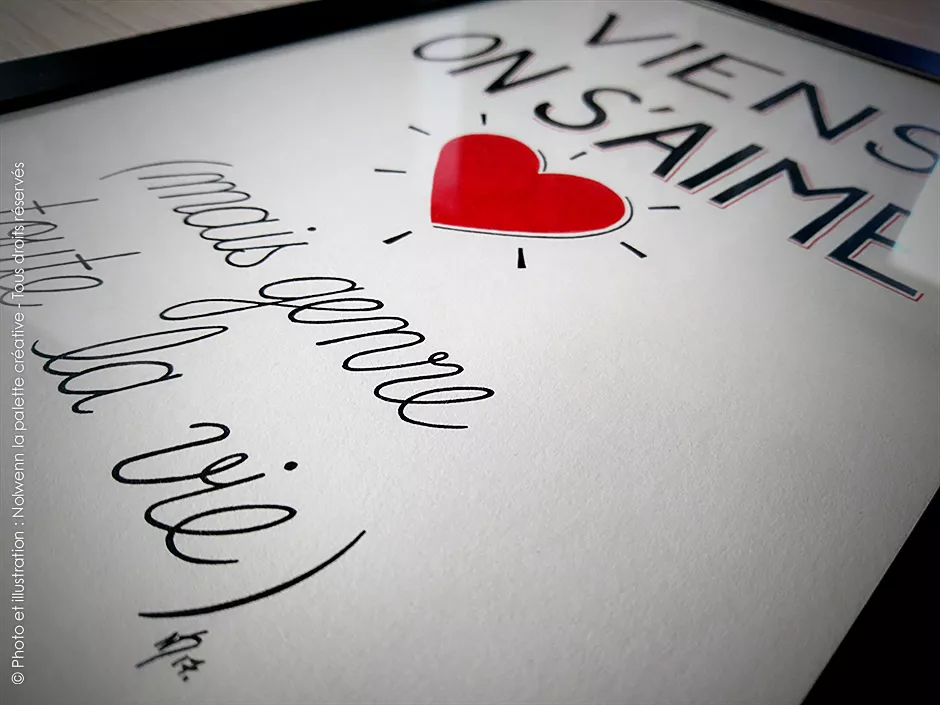 VIENS
ON S'AIME
(mais genre
toute
la vie)
© Photo et illustration : Nolwenn la palette créative - Tous droits réservés